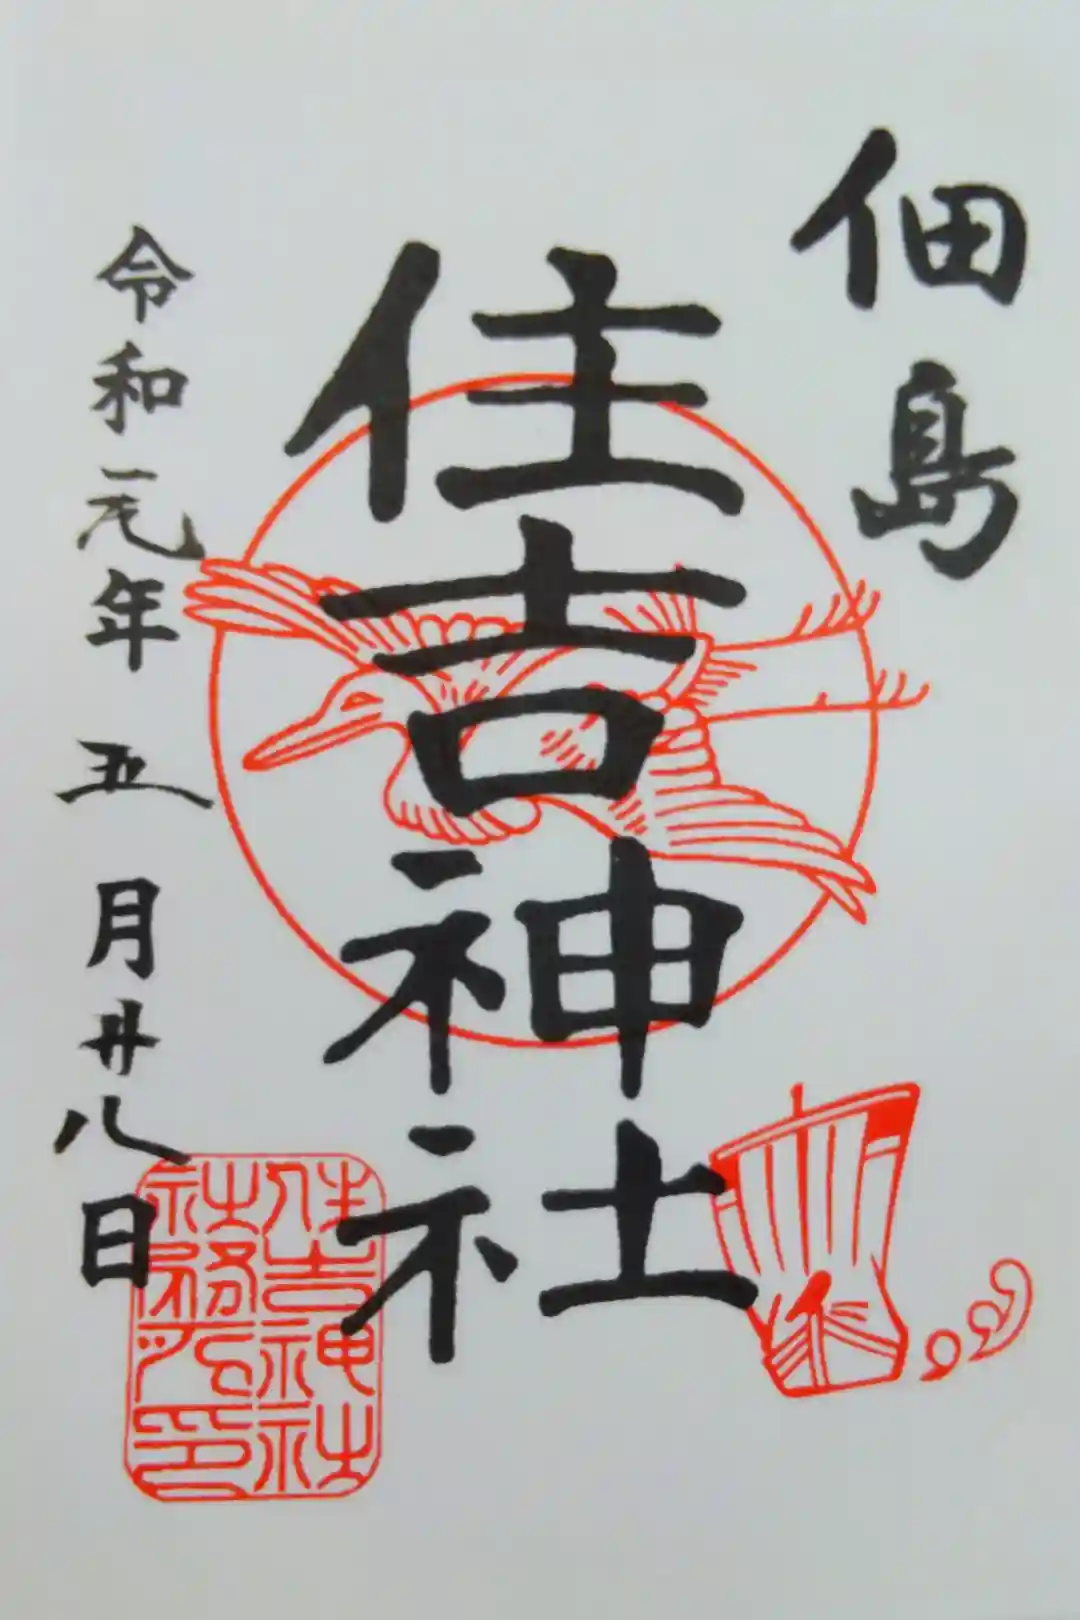 佃島
住吉神社
令和元年五月廿八日
住吉神社
社務所印